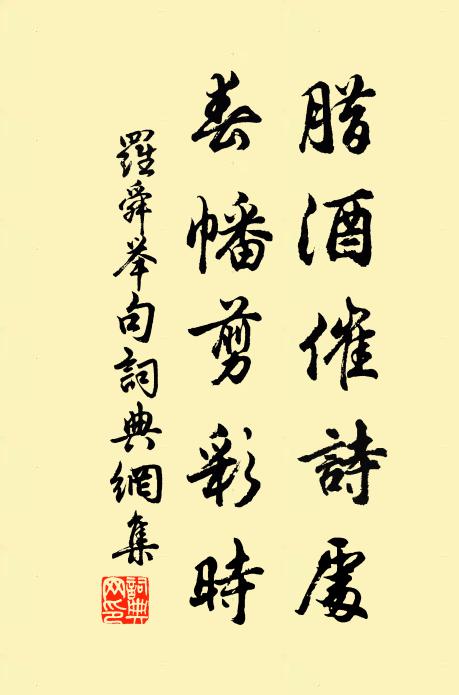 腊酒催詩處
春幡剪彩時
羅舜举句詞典網集
詞典
网印